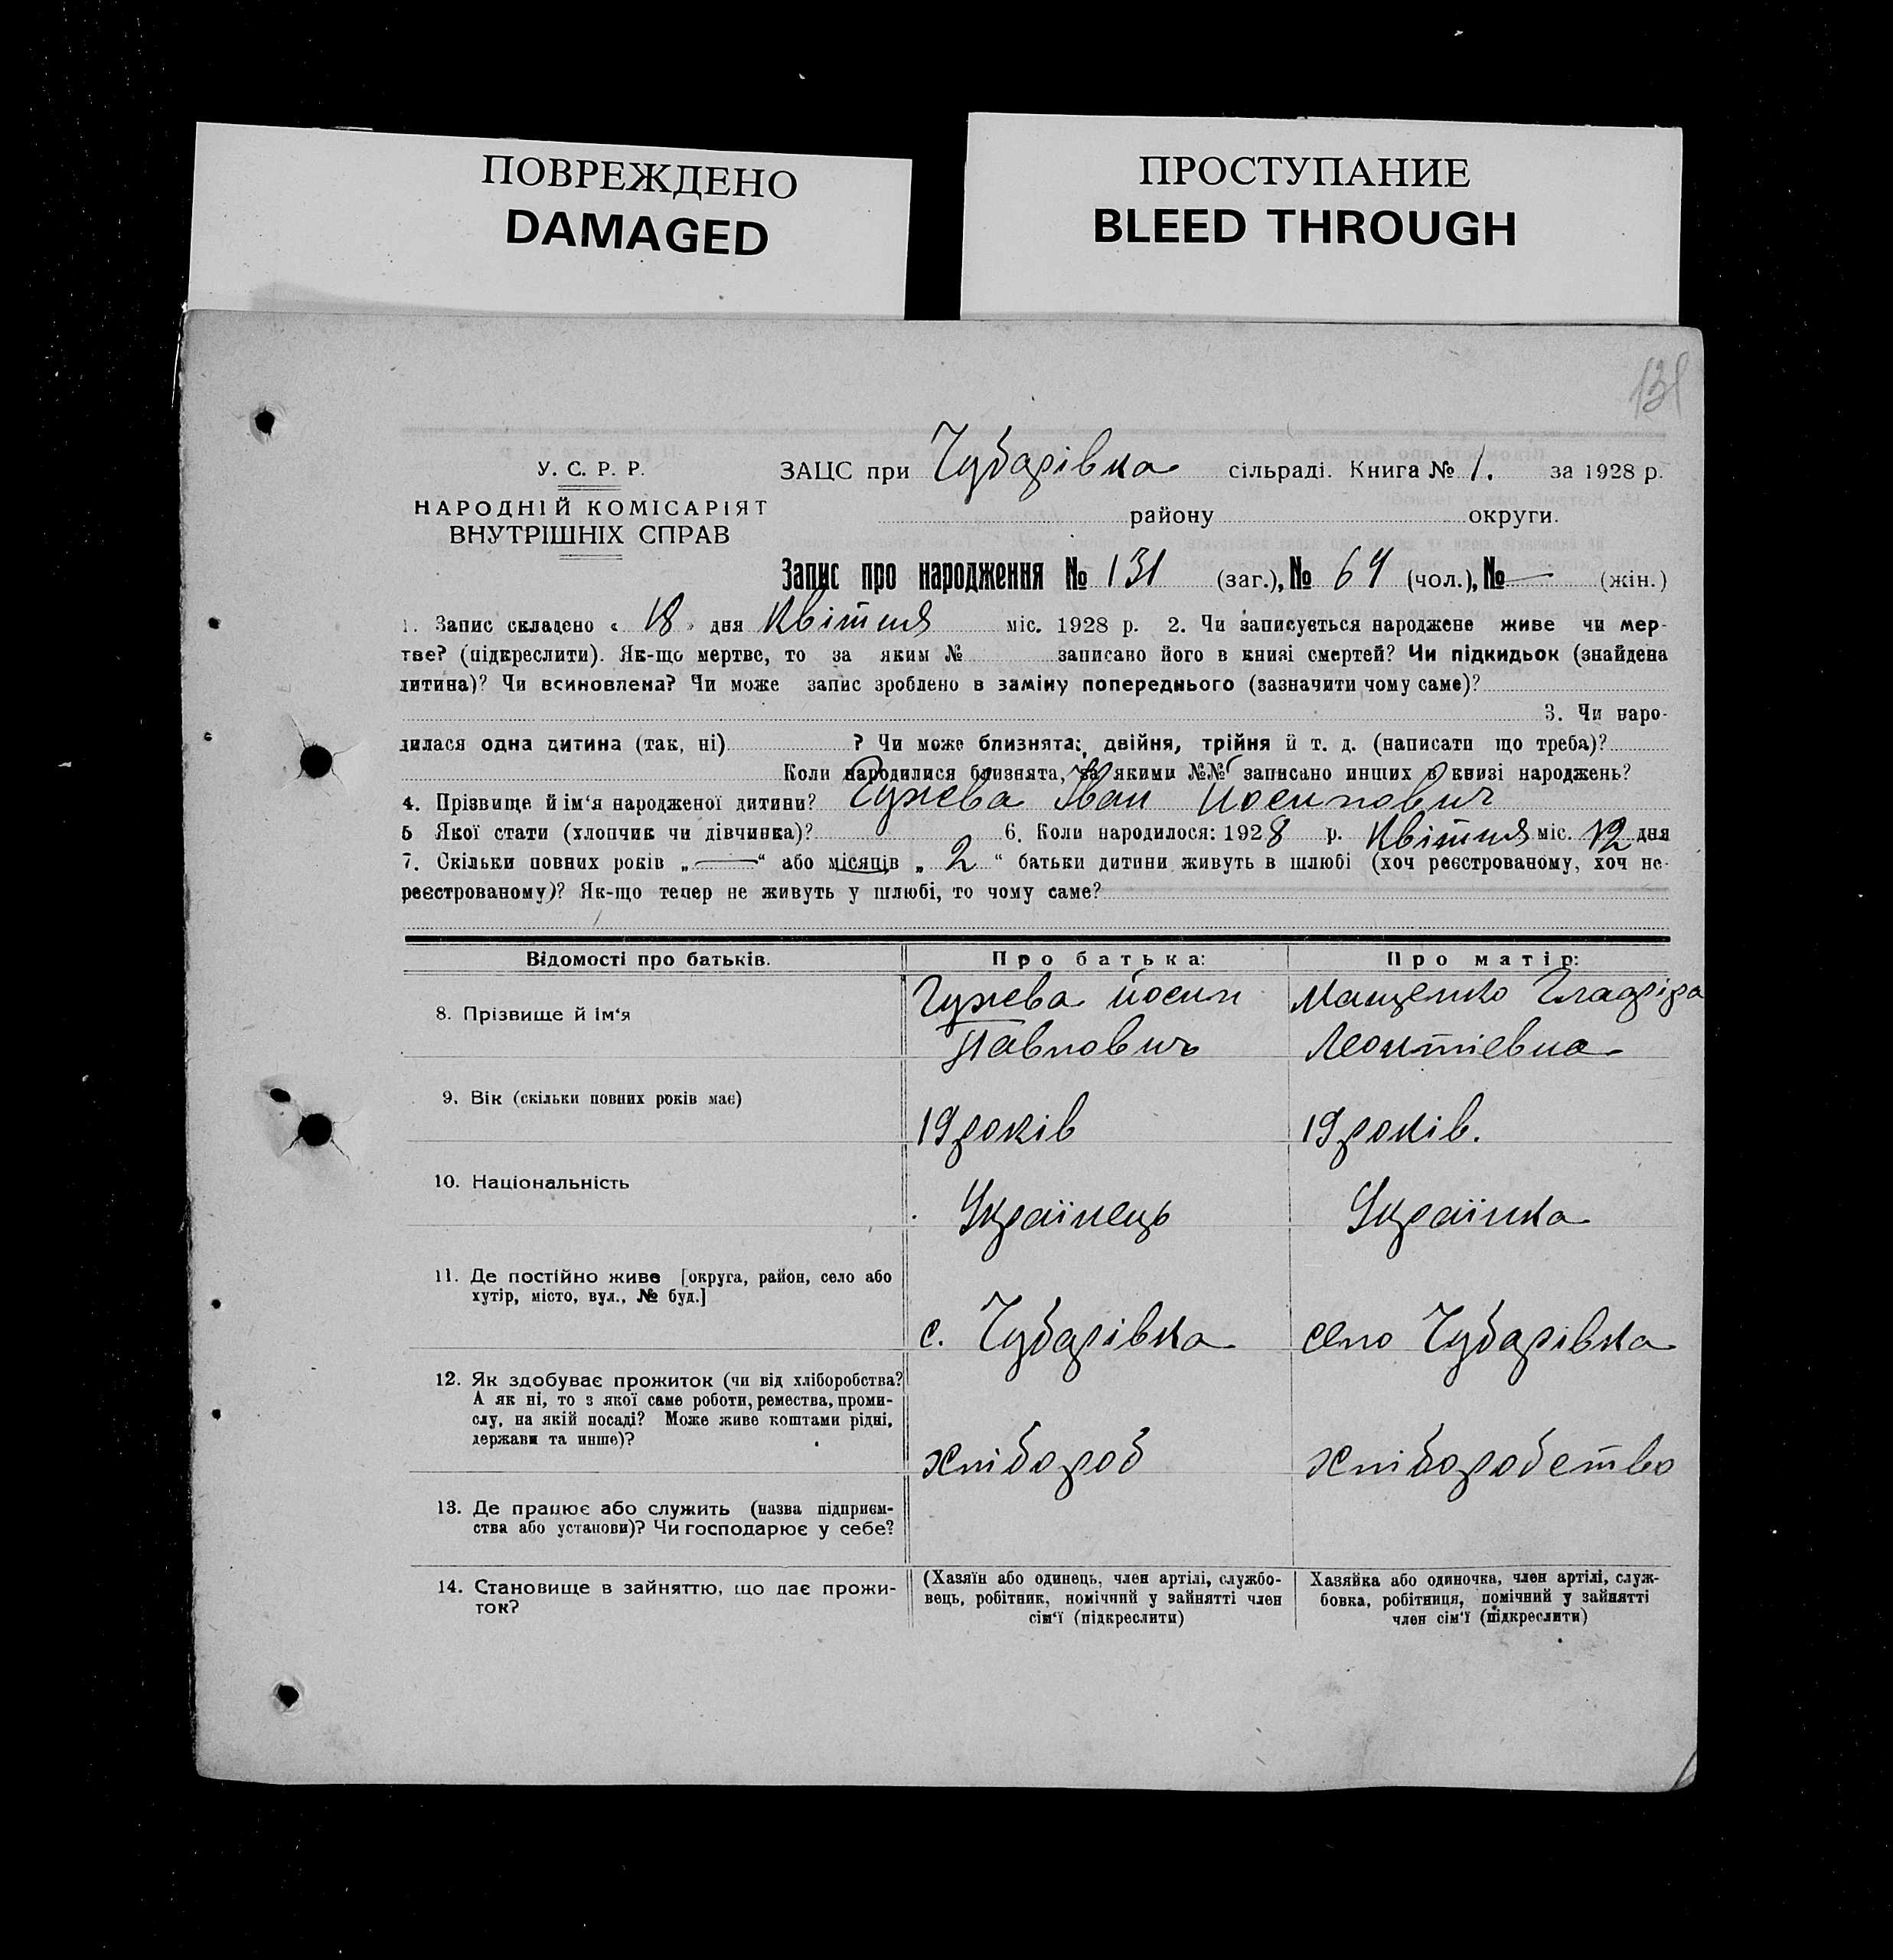 ПОВРЕЖДЕНО
DAMAGED
ПРОСТУПАНИЕ
BLEED THROUGH
131
У. С. Р. Р.
НАРОДНІЙ КОМІСАРІЯТ
ВНУТРІШНІХ СПРАВ
ЗАЦС при Чубарівка сільраді. Книга № 1. за 1928 р.
району округи.
Запис про народження № 131 (заг.), № 64 (чол.), № — (жін.)
1. Запис складено « 18 » дня Квітня міс. 1928 р. 2. Чи записується народжене живе чи мер-
тве? (підкреслити). Як-що мертве, то за яким № записано його в книзі смертей? Чи підкидьок (знайдена
дитина)? Чи всиновлена? Чи може запис зроблено в заміну попереднього (зазначити чому саме)?
3. Чи наро-
дилася одна дитина (так, ні) ? Чи може близнята: двійня, трійня й т. д. (написати що треба)?
Коли народилися близнята, за якими №№ записано инших в книзі народжень?
4. Прізвище й ім'я народженої дитини? Гужева Іван Йосипович
5 Якої стати (хлопчик чи дівчинка)? 6. Коли народилося: 1928 р. Квітня міс. 12 дня
7. Скільки повних років „—“ або місяців „ 2 “ батьки дитини живуть в шлюбі (хоч реєстрованому, хоч не-
реєстрованому)? Як-що тепер не живуть у шлюбі, то чому саме?
Відомості про батьків. Про батька: Про матір:
8. Прізвище й ім'я
Гужева Йосип
Павлович
Мащенко Глафіра
Леонтіевна
9. Вік (скільки повних років має)
19 років
19 років.
10. Національність
Українець
Українка
11. Де постійно живе [округа, район, село або
хутір, місто, вул., № буд.]
с. Чубарівка
село Чубарівка
12. Як здобуває прожиток (чи від хліборобства?
А як ні, то з якої саме роботи, ремества, проми-
слу, на якій посаді? Може живе коштами рідні,
держави та инше)?
хлібороб
хліборобство
13. Де працює або служить (назва підприєм-
ства або установи)? Чи господарює у себе?
14. Становище в зайняттю, що дає прожи-
ток?
(Хазяїн або одинець, член артілі, службо-
вець, робітник, помічний у зайнятті член
сім'ї (підкреслити)
Хазяйка або одиночка, член артілі, служ-
бовка, робітниця, помічний у зайнятті
член сім'ї (підкреслити)